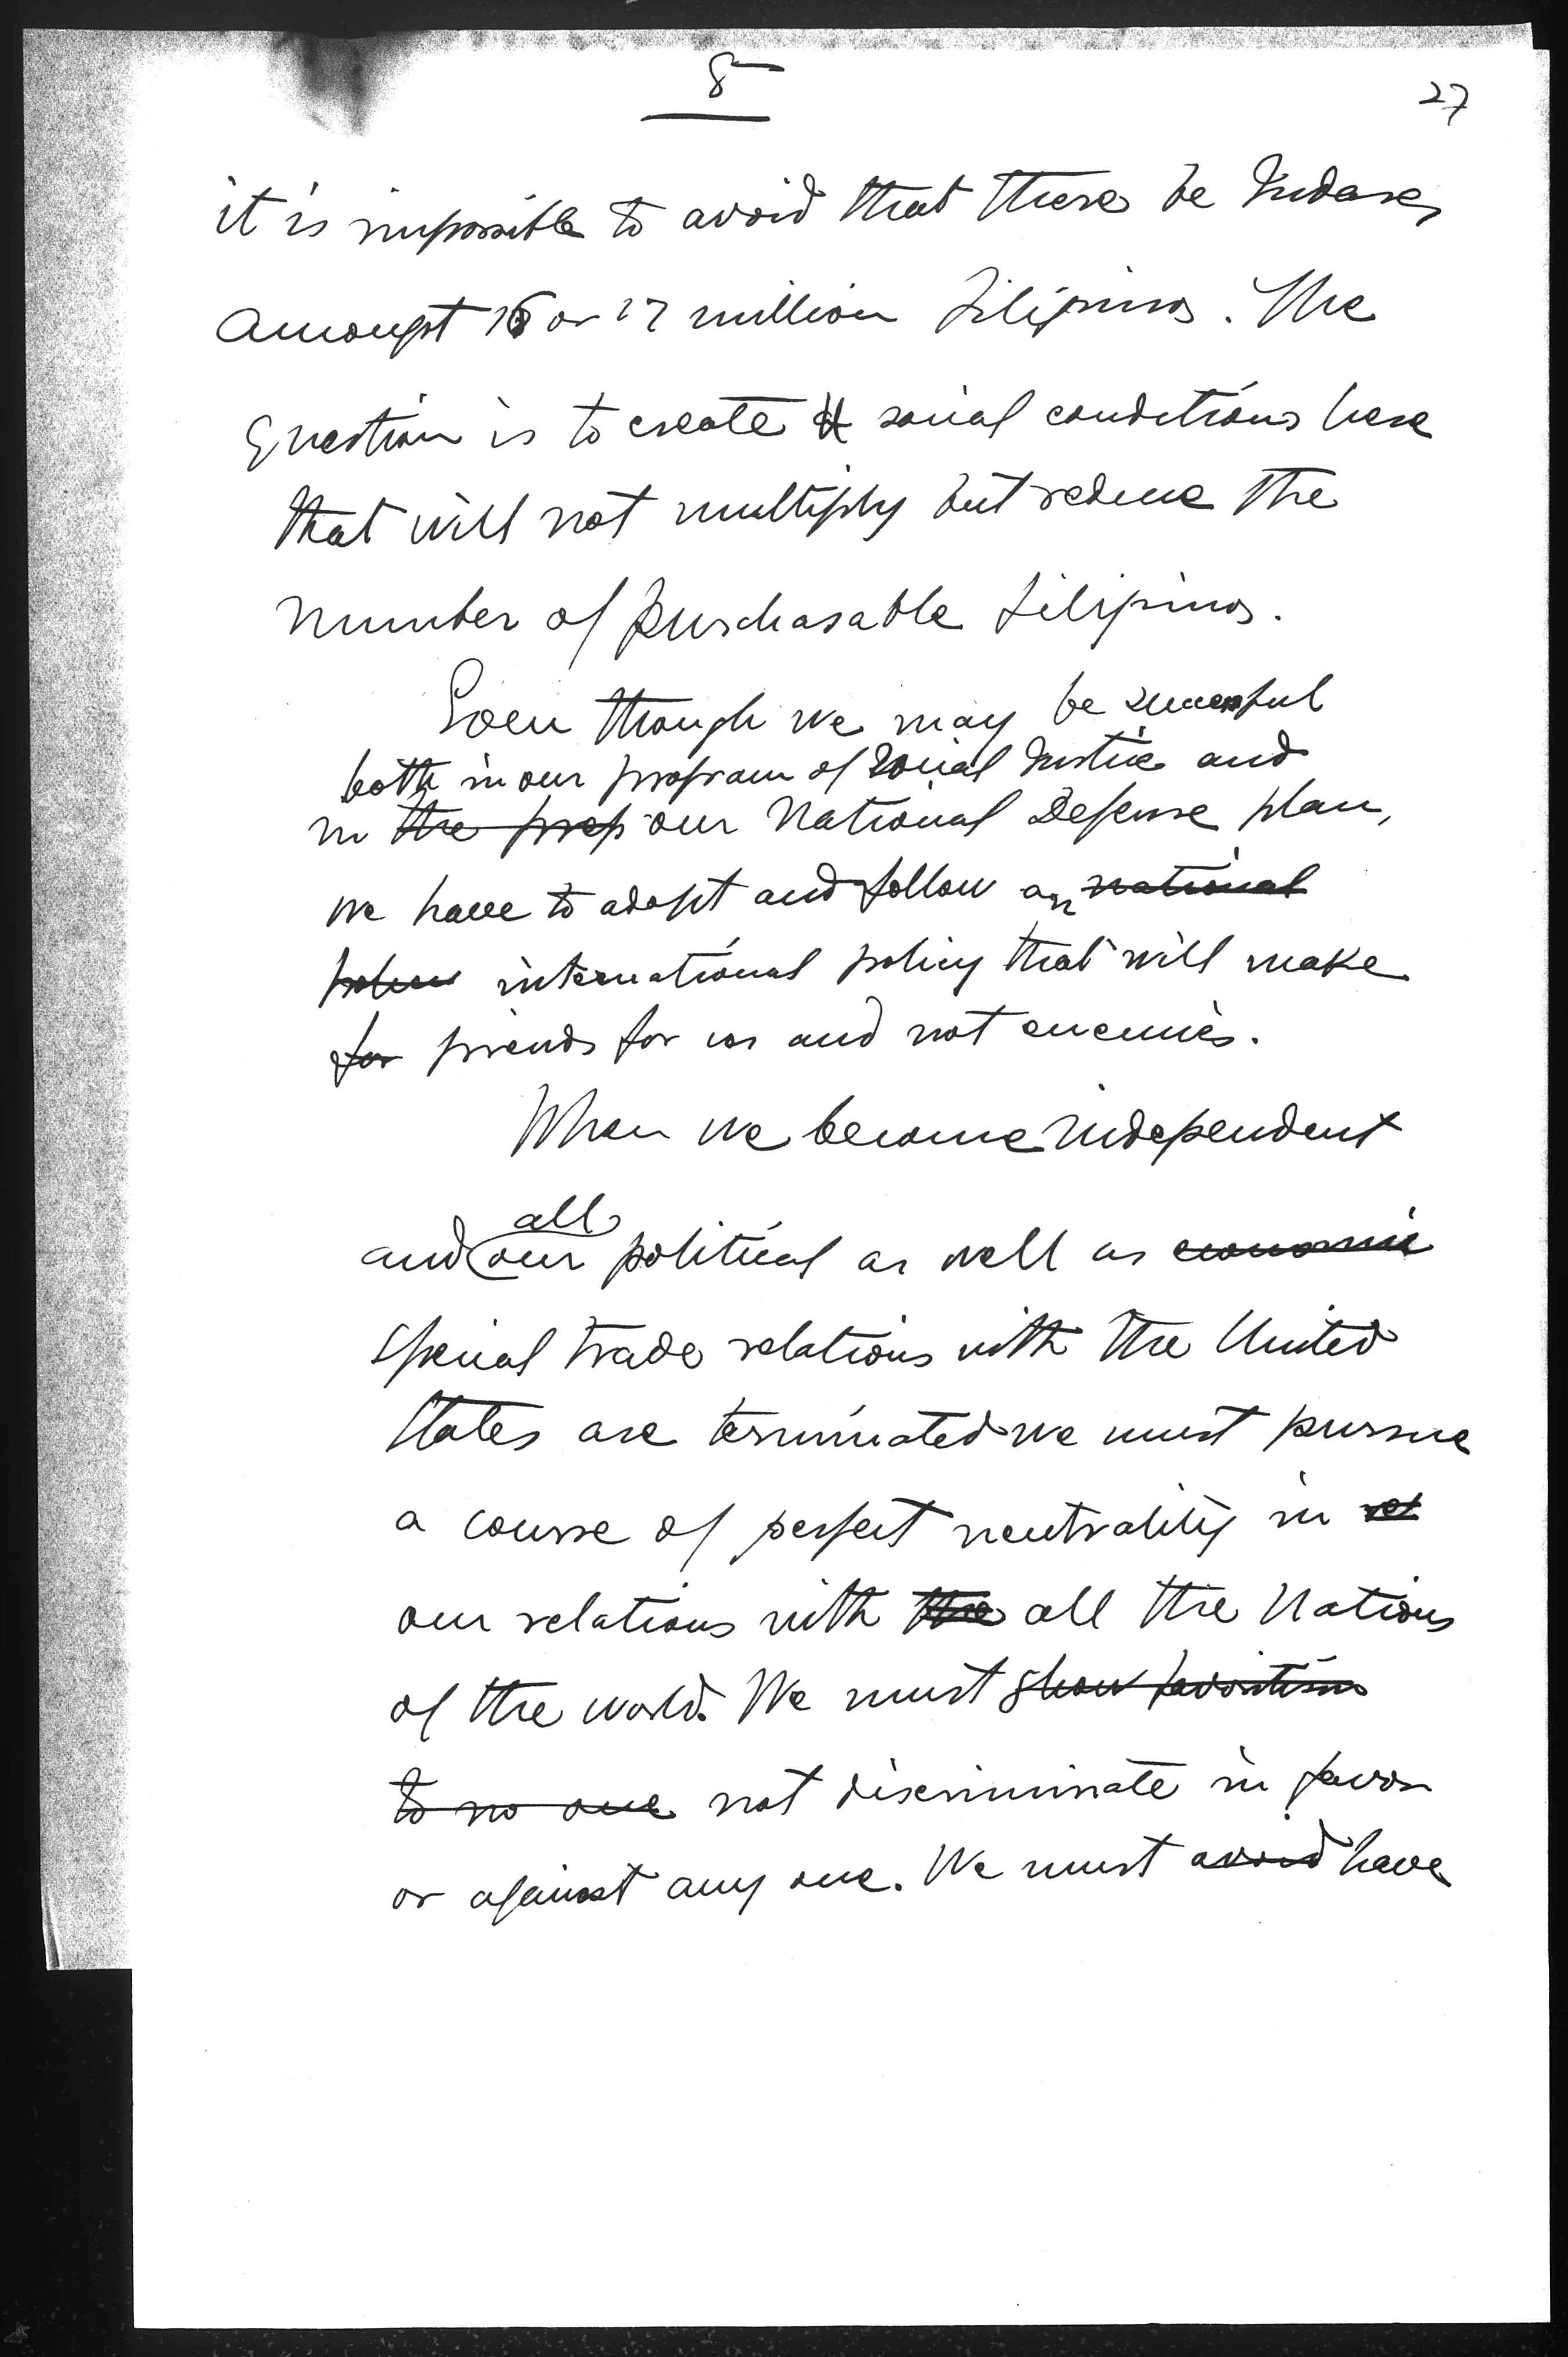 8
27
it is impossible to avoid that there be Judases
Amongst 16 or 17 million Filipinos. The
Question is to create social conditions here
that will not multiply but reduce the
number of purchasable Filipinos.
Even though we may be successful
both in our program of Social Justice and
in the prep our National Defense plan,
we have to adopt and follow an national
international policy that will make
for friends for us and not enemies.
When we become independent
all
and our political as well as economic
special trade relations with the United
States are terminated we must pursue
a course of perfect neutrality in rel
our relations with the all the Nations
of the world. We must show favoritism
to no one not discriminate in favor
or against any one. We must avoid have